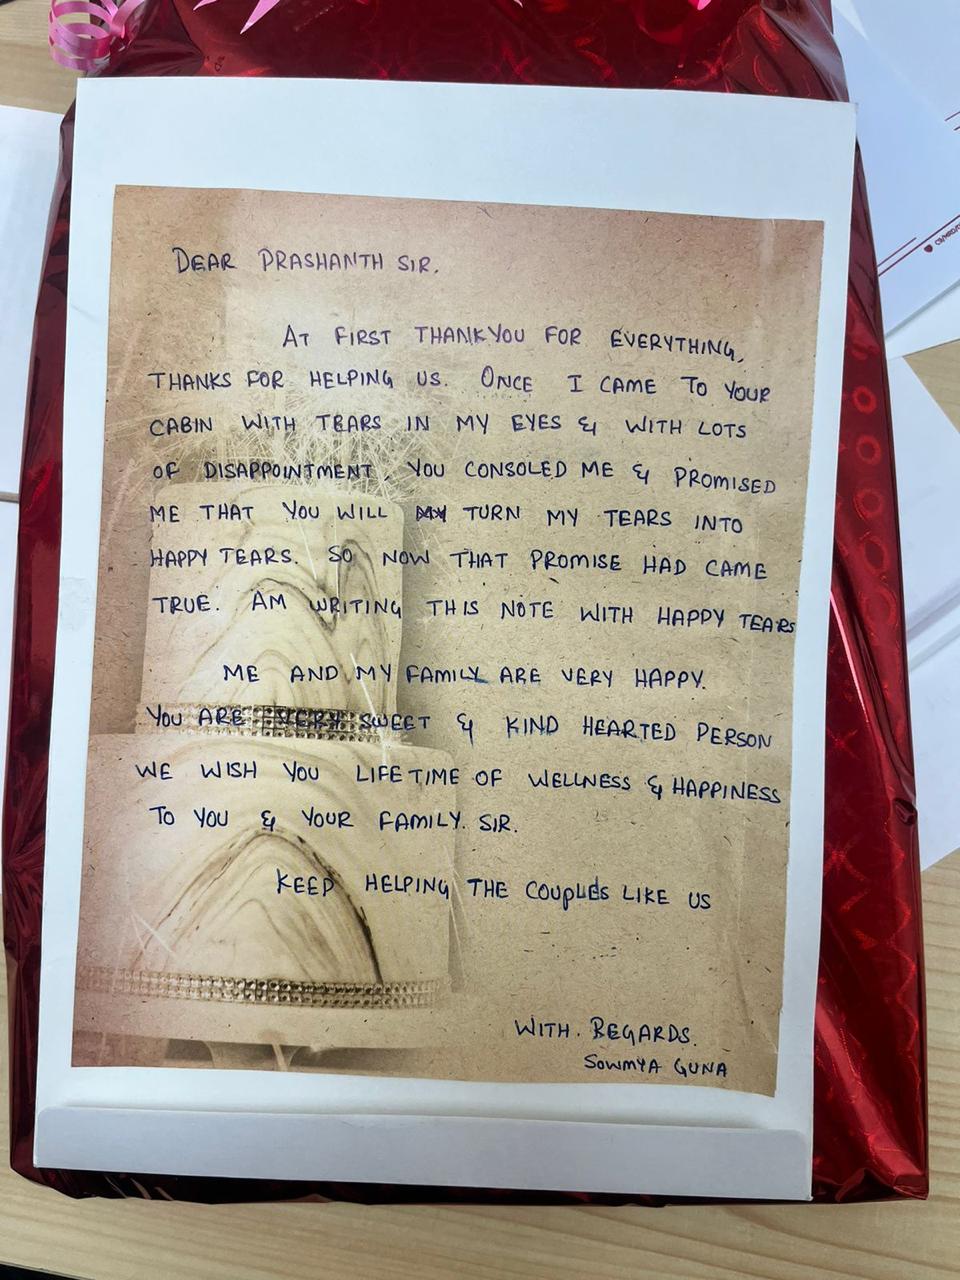 DEAR PRASHANTH SIR.
AT FIRST THANKYOU FOR EVERYTHING,
THANKS FOR HELPING US. ONCE I CAME TO YOUR
CABIN WITH TEARS IN MY EYES & WITH LOTS
OF DISAPPOINTMENT, YOU CONSOLED ME & PROMISED
ME THAT YOU WILL TURN MY TEARS INTO
HAPPY TEARS. SO NOW THAT PROMISE HAD CAME
TRUE. AM WRITING THIS NOTE WITH HAPPY TEARS
ME AND MY FAMILY ARE VERY HAPPY.
YOU ARE VERY SWEET & KIND HEARTED PERSON
WE WISH YOU LIFETIME OF WELLNESS & HAPPINESS
TO YOU & YOUR FAMILY. SIR.
KEEP HELPING THE COUPLES LIKE US
WITH. REGARDS.
SOWMYA GUNA